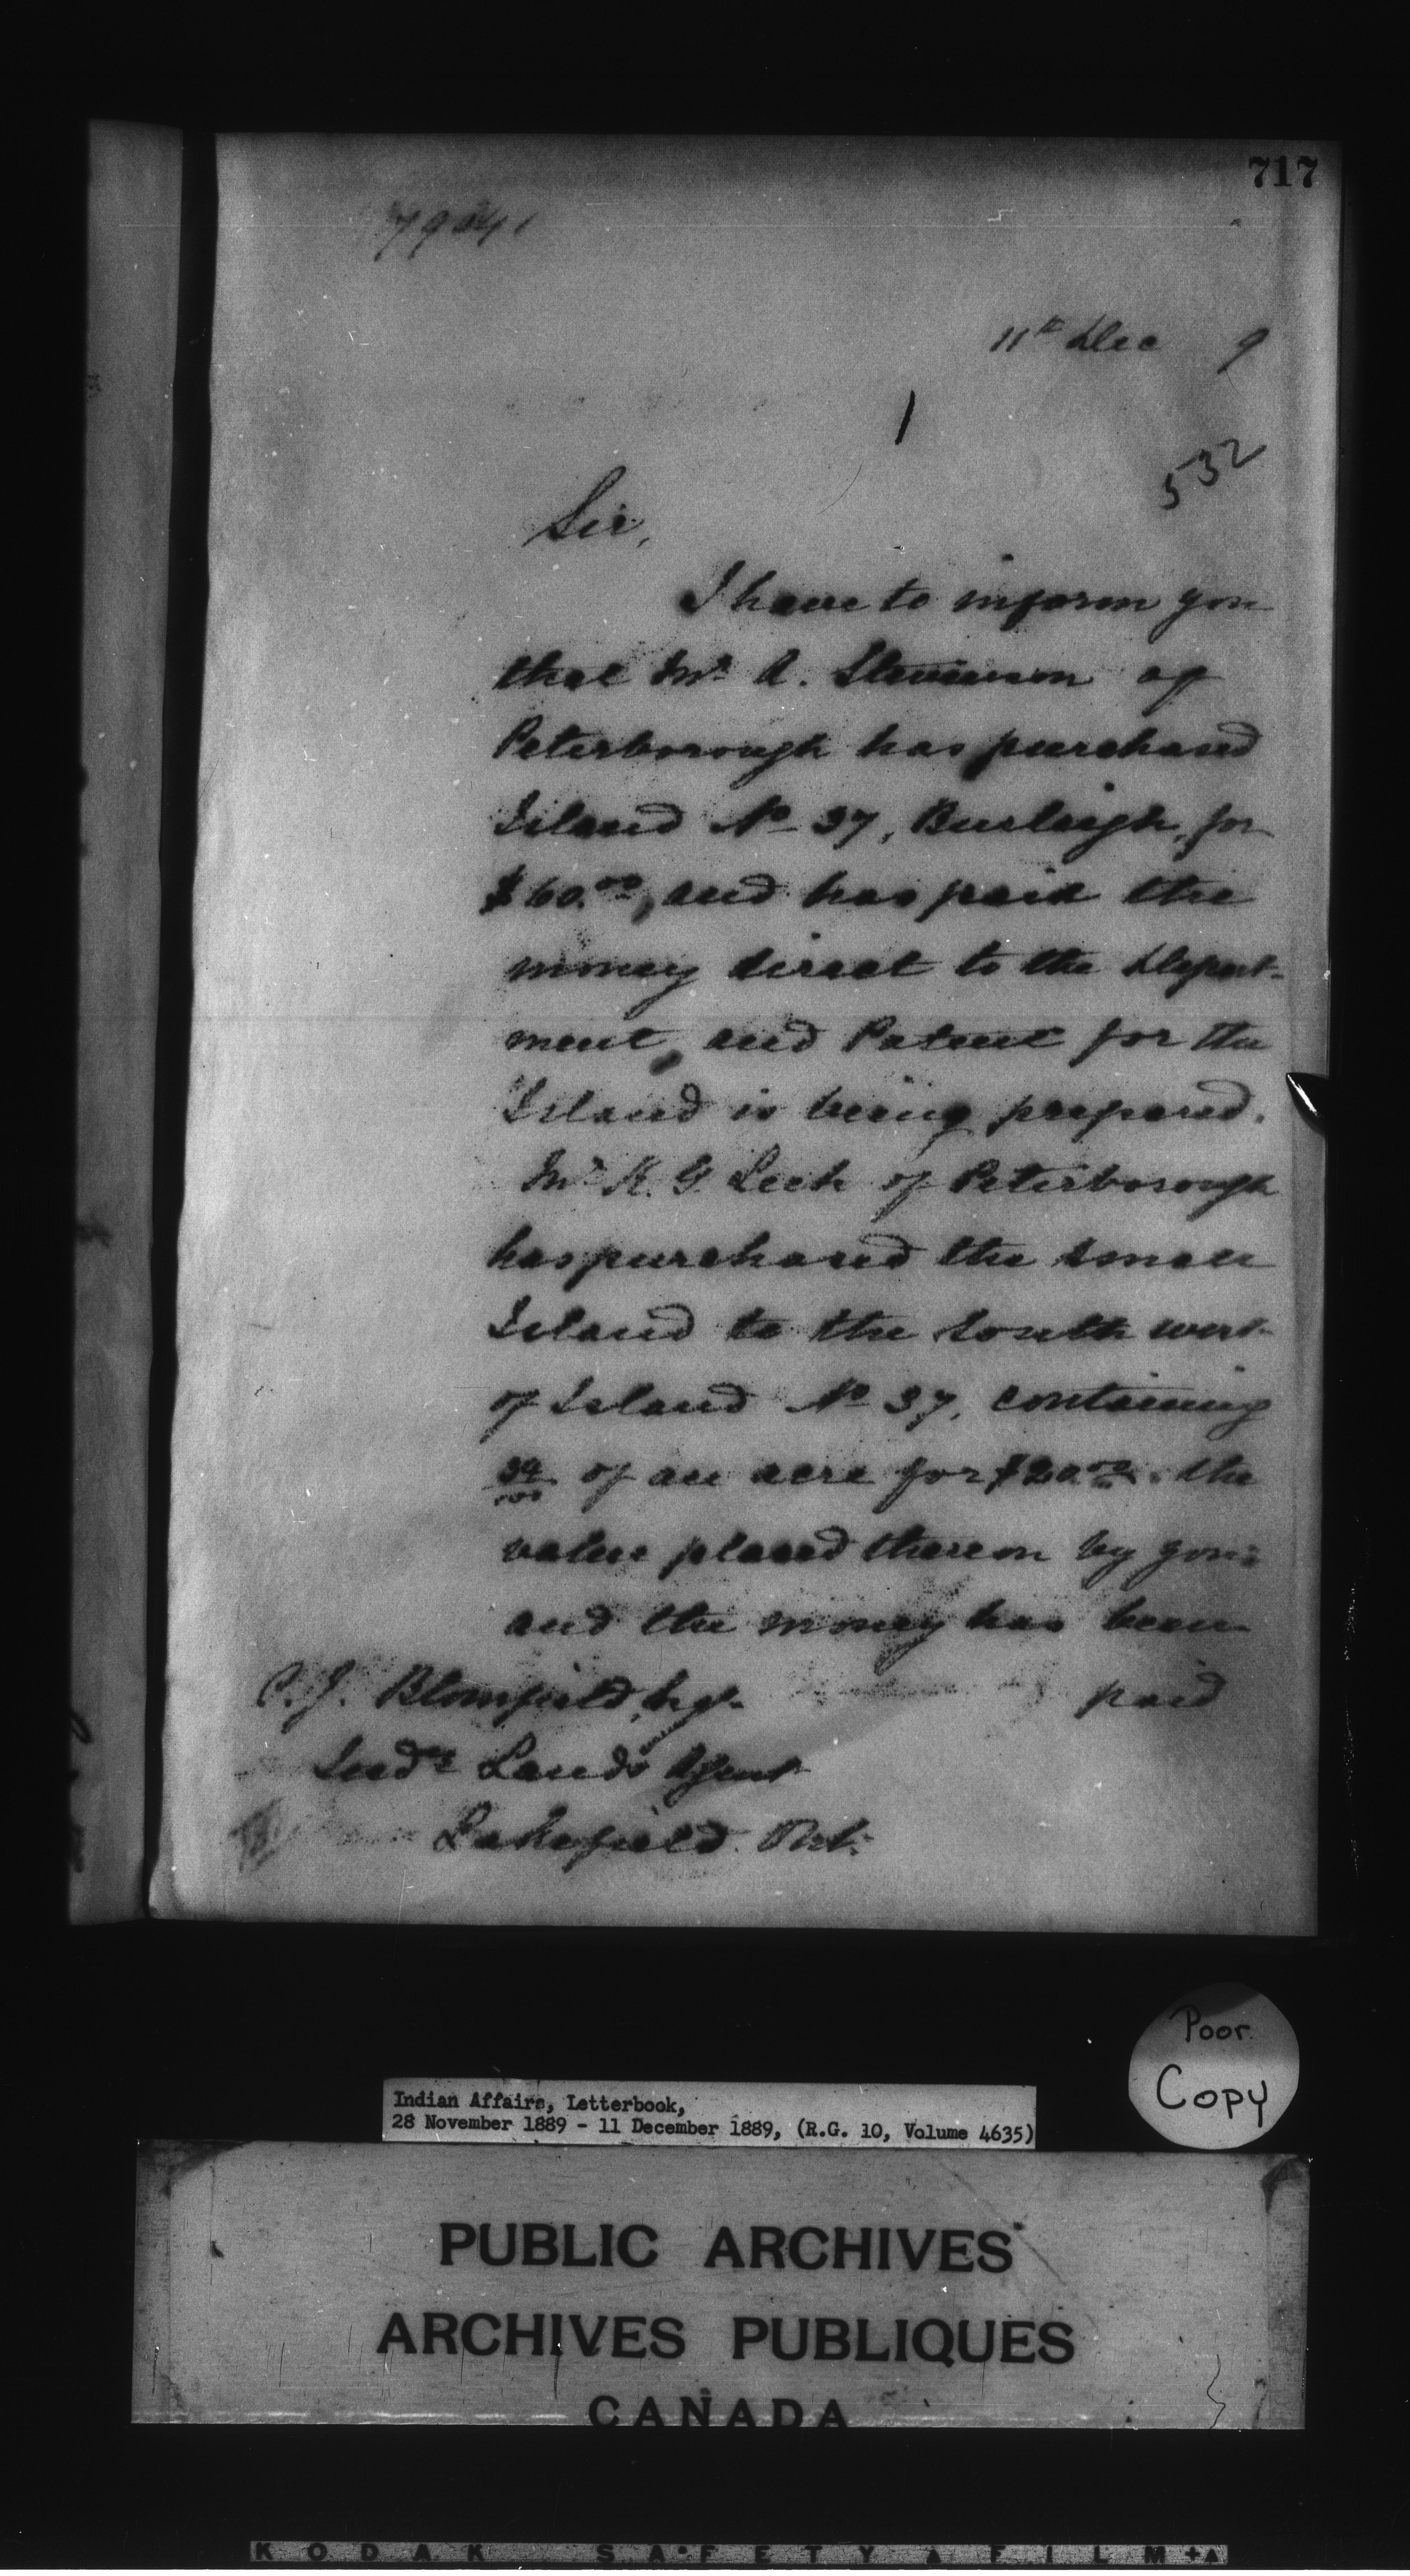 717
11th Dec 9
532
Sir,
I have to inform you
that Mr. A. Stevenson of
Peterborough has purchased
Island No 37, Burleigh, for
$60.00, and has paid the
money direct to the Depart-
ment, and Patent for the
Island is being prepared.
Mr. K. G. Leech of Peterborough
has purchased the small
Island to the south west
of Island No 37, containing
of an acre for $20.00 the
value placed thereon by you
and the money has been
paid
C. J. Blomfield, Esq.
Indn Lands Agent
Lakefield. Ont.
Poor
Copy
Indian Affairs, Letterbook,
28 November 1889 - 11 December 1889, (R.G. 10, Volume 4635)
PUBLIC ARCHIVES
ARCHIVES PUBLIQUES
CANADA
KODAK SAFETY FILM